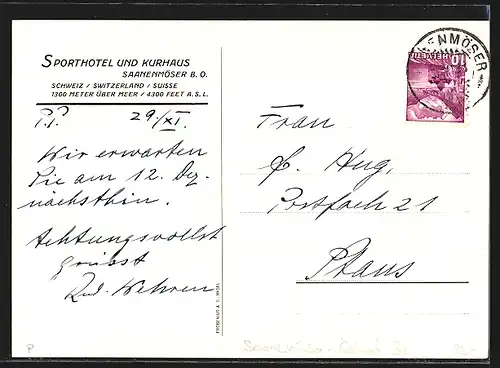 SPORTHOTEL UND KURHAUS
SAANENMÖSER B.O.
SCHWEIZ / SWITZERLAND / SUISSE
1300 METER ÜBER MEER / 4300 FEET A.S.L.
P.P. 29./XI.
Wir erwarten
Sie am 12. Dez.
nächsthin.
Achtungsvollst
grüsst
Rud. Wehren
ENMÖSER
HELVETIA
10
Frau
F. Hug,
Postfach 21
Stans